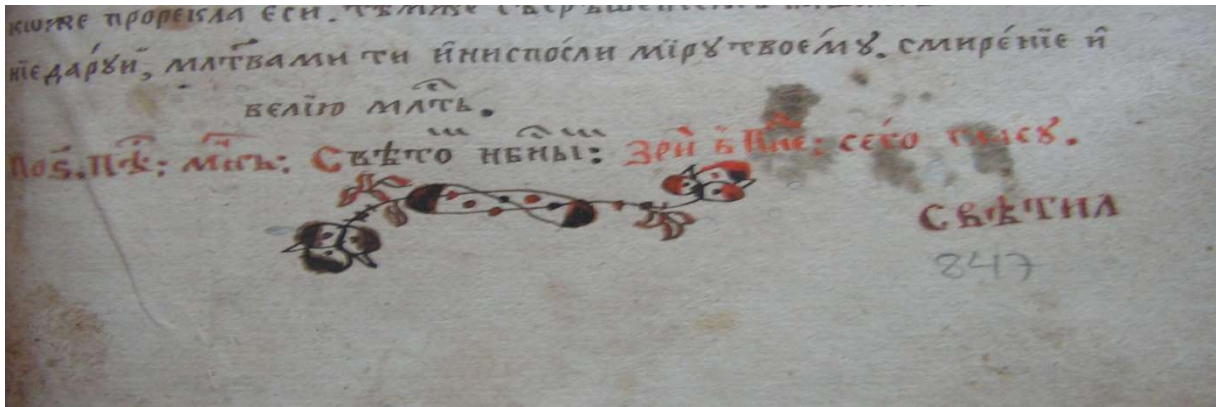 кѡже прорекла еси. тѣмже съвръшен
нїе дарꙋй, млт҃вами ти и҆ ниспосли мїрꙋ твоемꙋ. смире́нїе и҆
велїю млть.
по ѕ҃. пѣ: мⷭ҇нъ: Свѣто нбны: Зри в҃ п҃ле: сего гласꙋ.
свѣтил
847